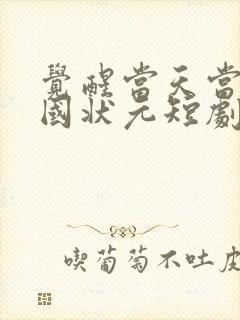 覺醒當天當
國狀元短劇
喫葡萄不吐皮